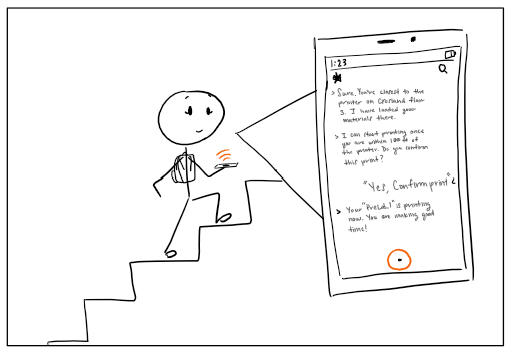 1:23
> Sure. You're closest to the
printer on Crosland floor
3. I have loaded your
materials there.
> I can start printing once
you are within 100 ft of
the printer. Do you confirm
this print?
"Yes, Confirm print" <
> Your "PreLab.1" is printing
now. You are making good
time!